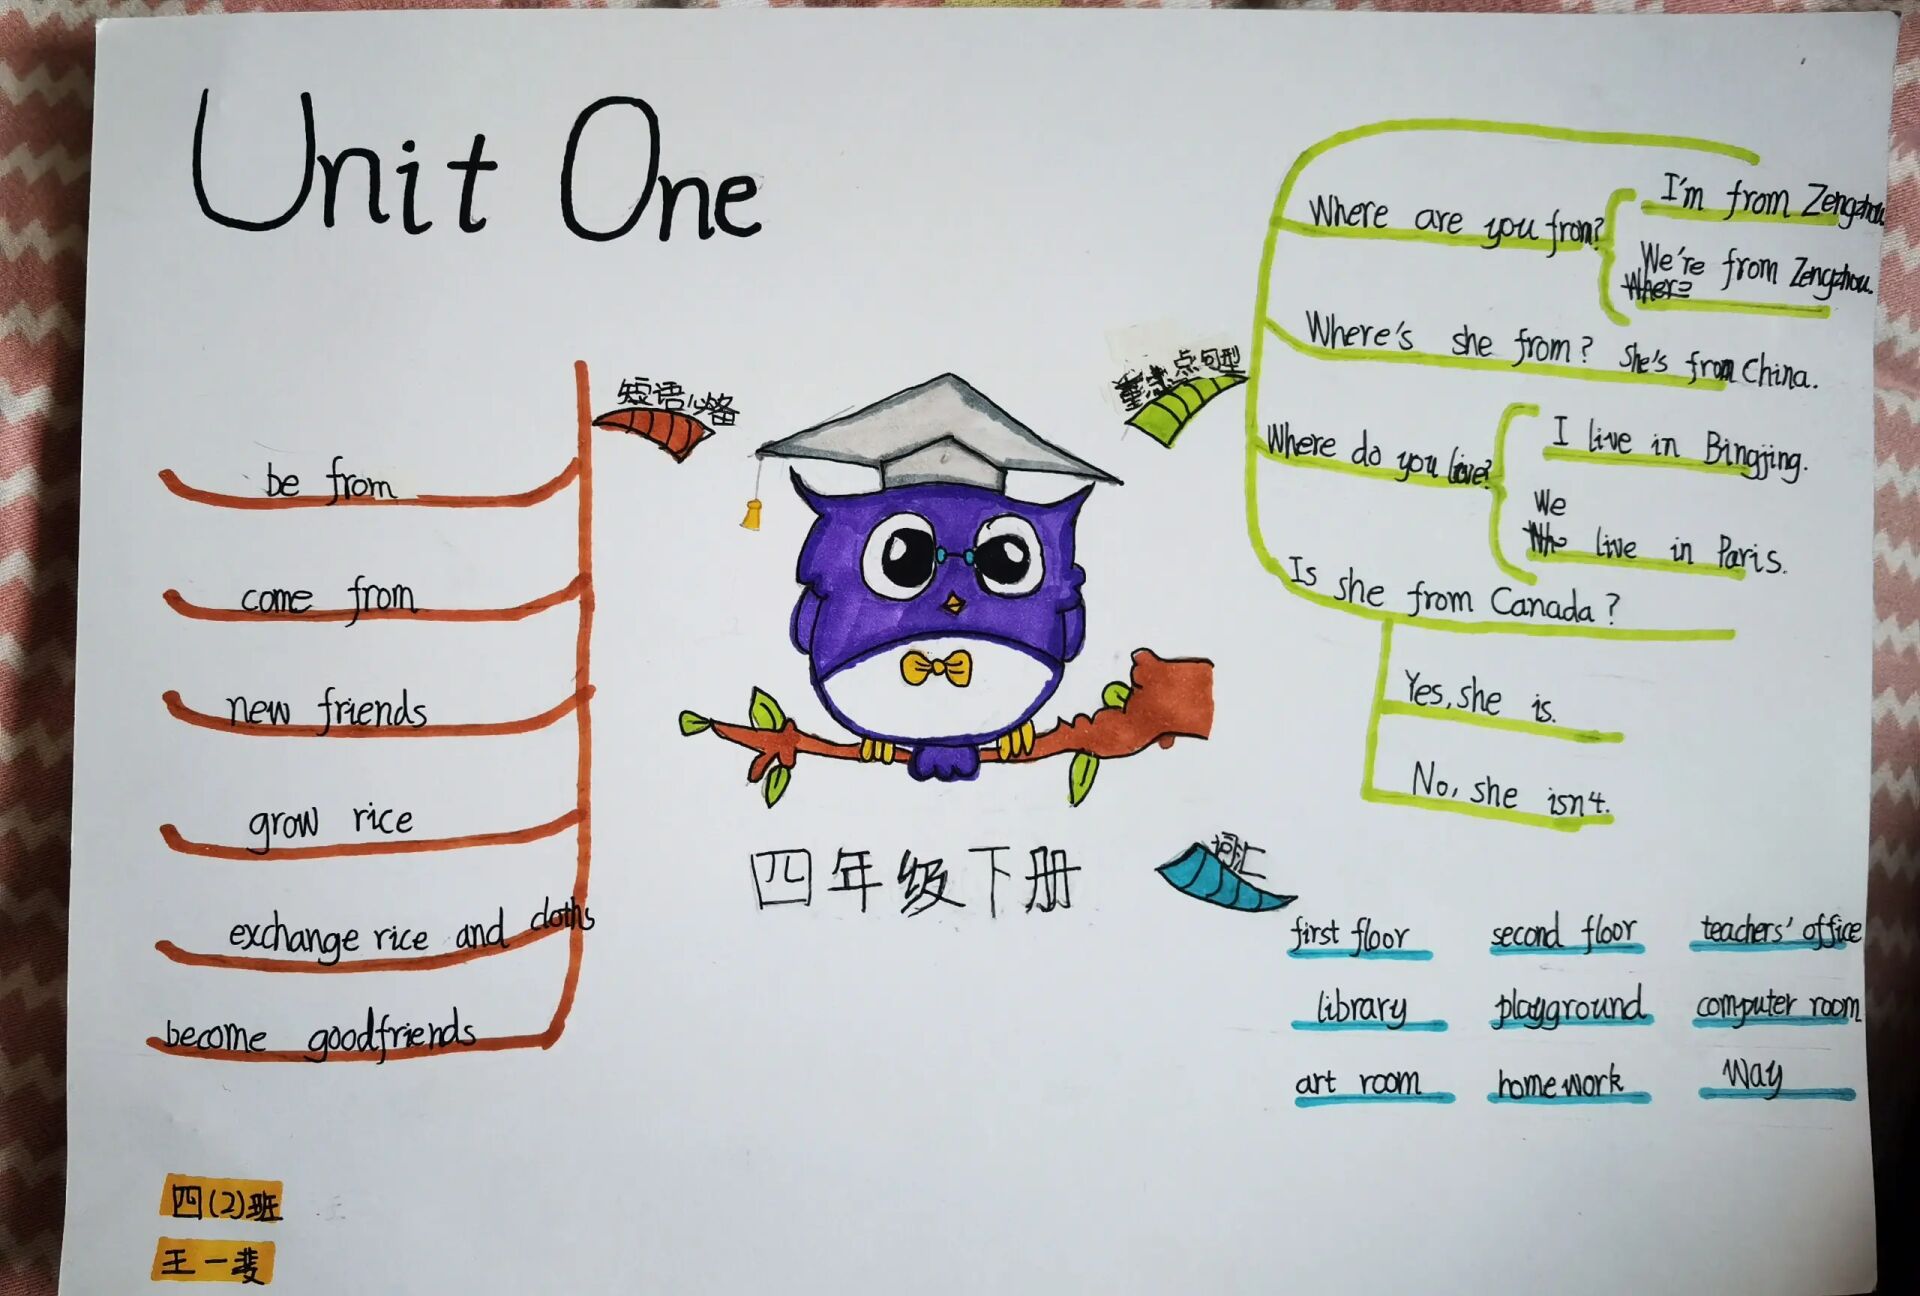 Unit One
短语必备
be from
come from
new friends
grow rice
exchange rice and cloths
become goodfriends
四年级下册
重点句型
Where are you from?
I'm from Zengzhou.
We're from Zengzhou.
Where's she from? She's from China.
Where do you live?
I live in Bingjing.
We live in Paris.
Is she from Canada?
Yes, she is.
No, she isn't.
词汇
first floor second floor teachers' office
library playground computer room
art room homework Way
四(2)班
王一